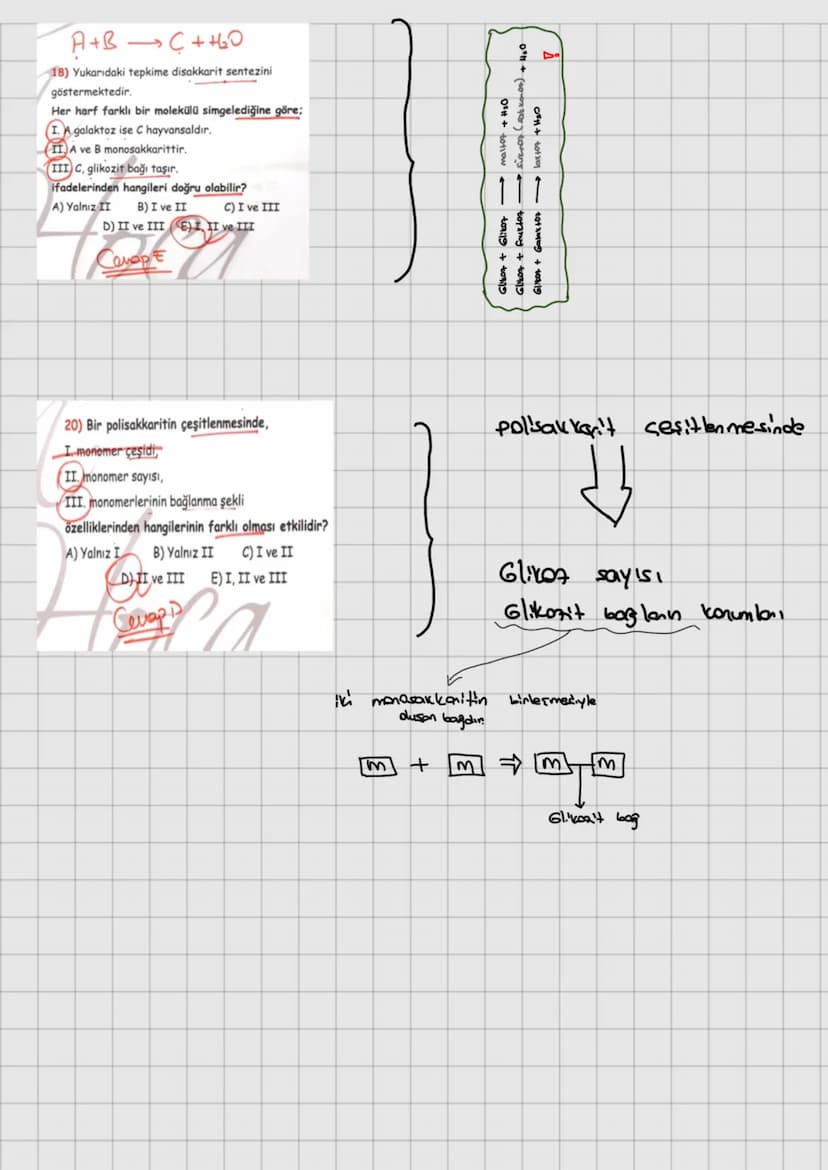 A+B → C + H₂O
18) Yukarıdaki tepkime disakkarit sentezini
göstermektedir.
Her harf farklı bir molekülü simgelediğine göre;
I. A galaktoz ise C hayvansaldır.
II. A ve B monosakkarittir.
III. C, glikozit bağı taşır.
ifadelerinden hangileri doğru olabilir?
A) Yalnız II B) I ve II C) I ve III
D) II ve III E) I, II ve III
Cevap E
Glikoz + Glikoz → maltoz + H₂O
Glikoz + Fruktoz → sükroz (sakkaroz) + H₂O
Glikoz + Galaktoz → laktoz + H₂O
20) Bir polisakkaritin çeşitlenmesinde,
I. monomer çeşidi,
II. monomer sayısı,
III. monomerlerinin bağlanma şekli
özelliklerinden hangilerinin farklı olması etkilidir?
A) Yalnız I B) Yalnız II C) I ve II
D) II ve III E) I, II ve III
Cevap D
Hoca
polisakkarit çeşitlenmesinde
Glikoz sayısı
Glikozit bağların konumları
iki monosakkaritin birleşmesiyle
oluşan bağdır.
m + m ⇒ m m
Glikozit bağ